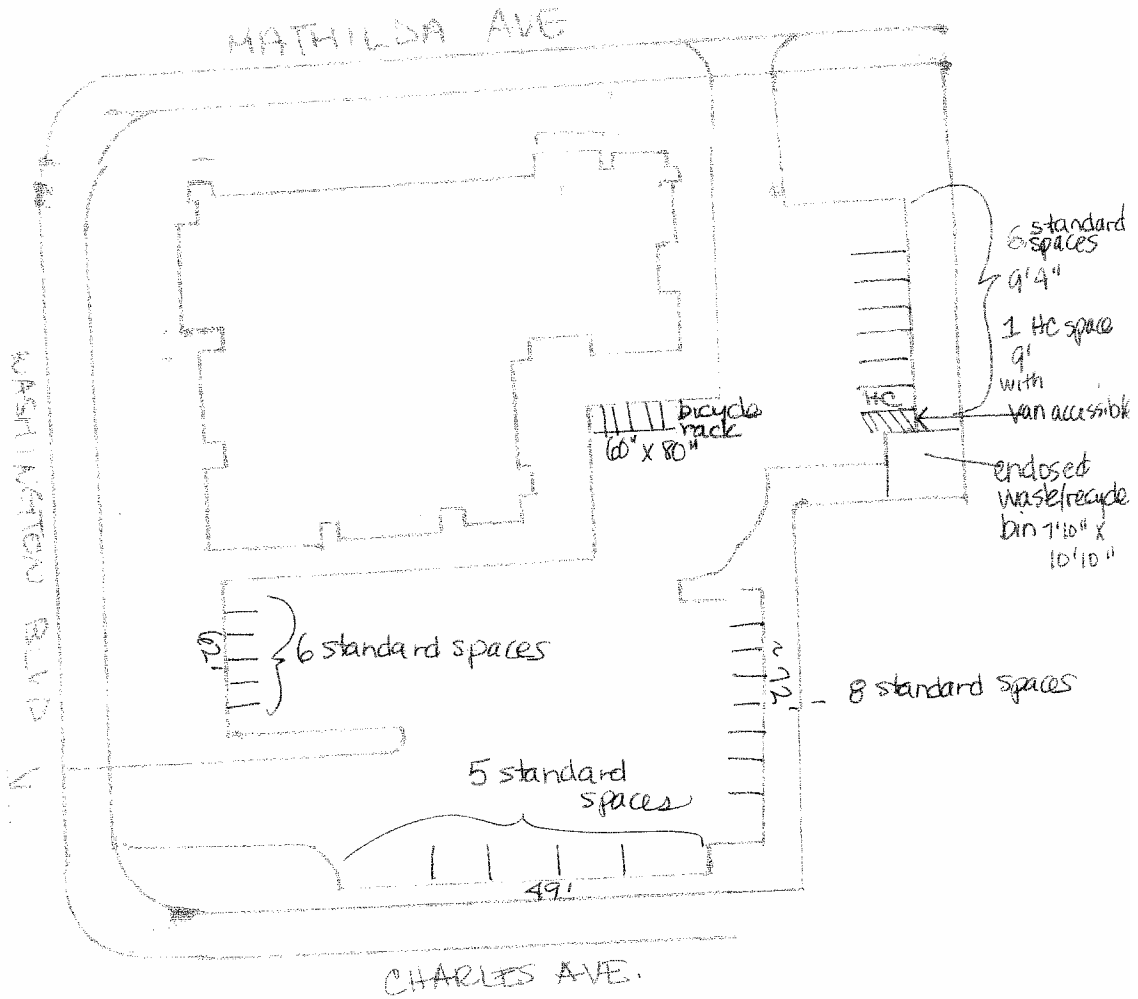 MATHILDA AVE
WASHINGTON BLVD
6 standard
spaces
9'4"
1 HC space
9'
with
van accessible
HC
bicycle
rack
60" X 80"
enclosed
waste/recycle
bin 7'10" X
10'10"
62'
6 standard spaces
~72'
8 standard spaces
5 standard
spaces
49'
CHARLES AVE.